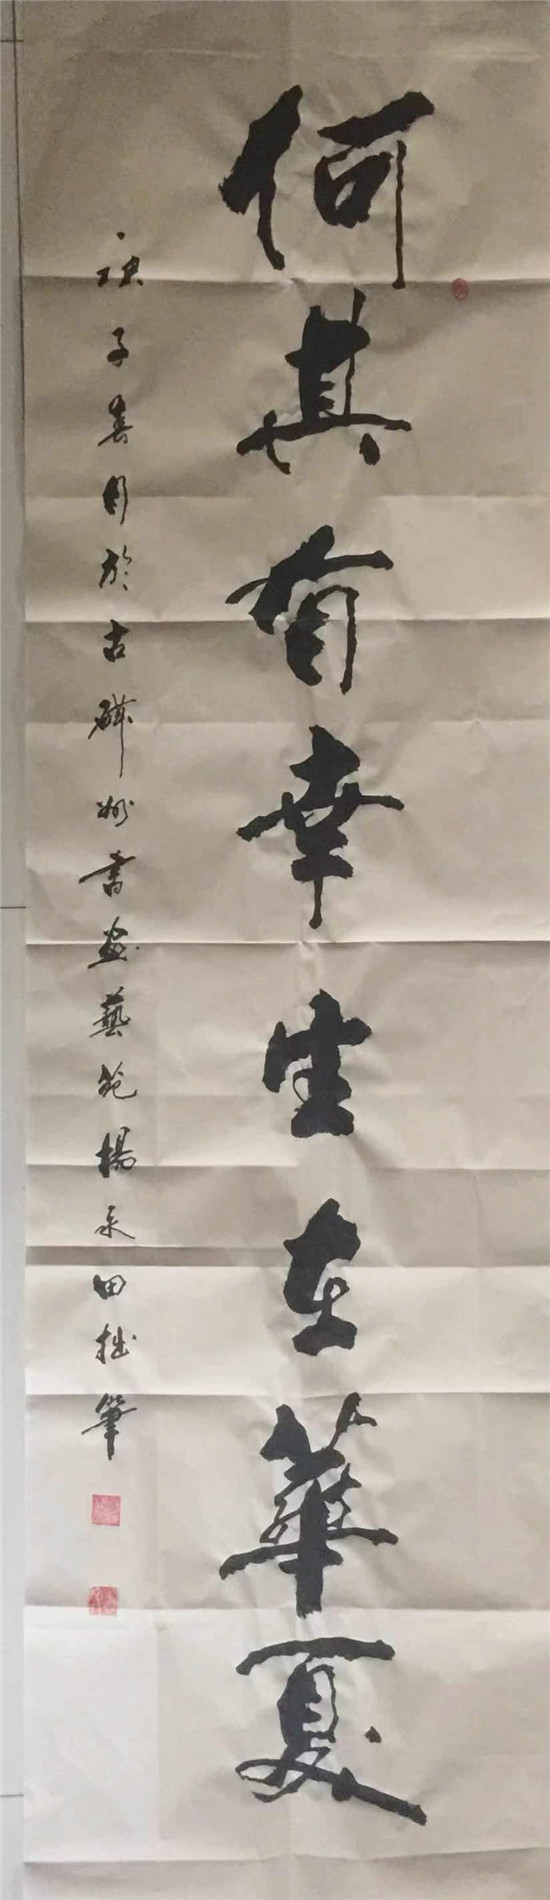 何其有幸生在華夏
庚子春月於古磁州書畫藝苑楊永田拙筆